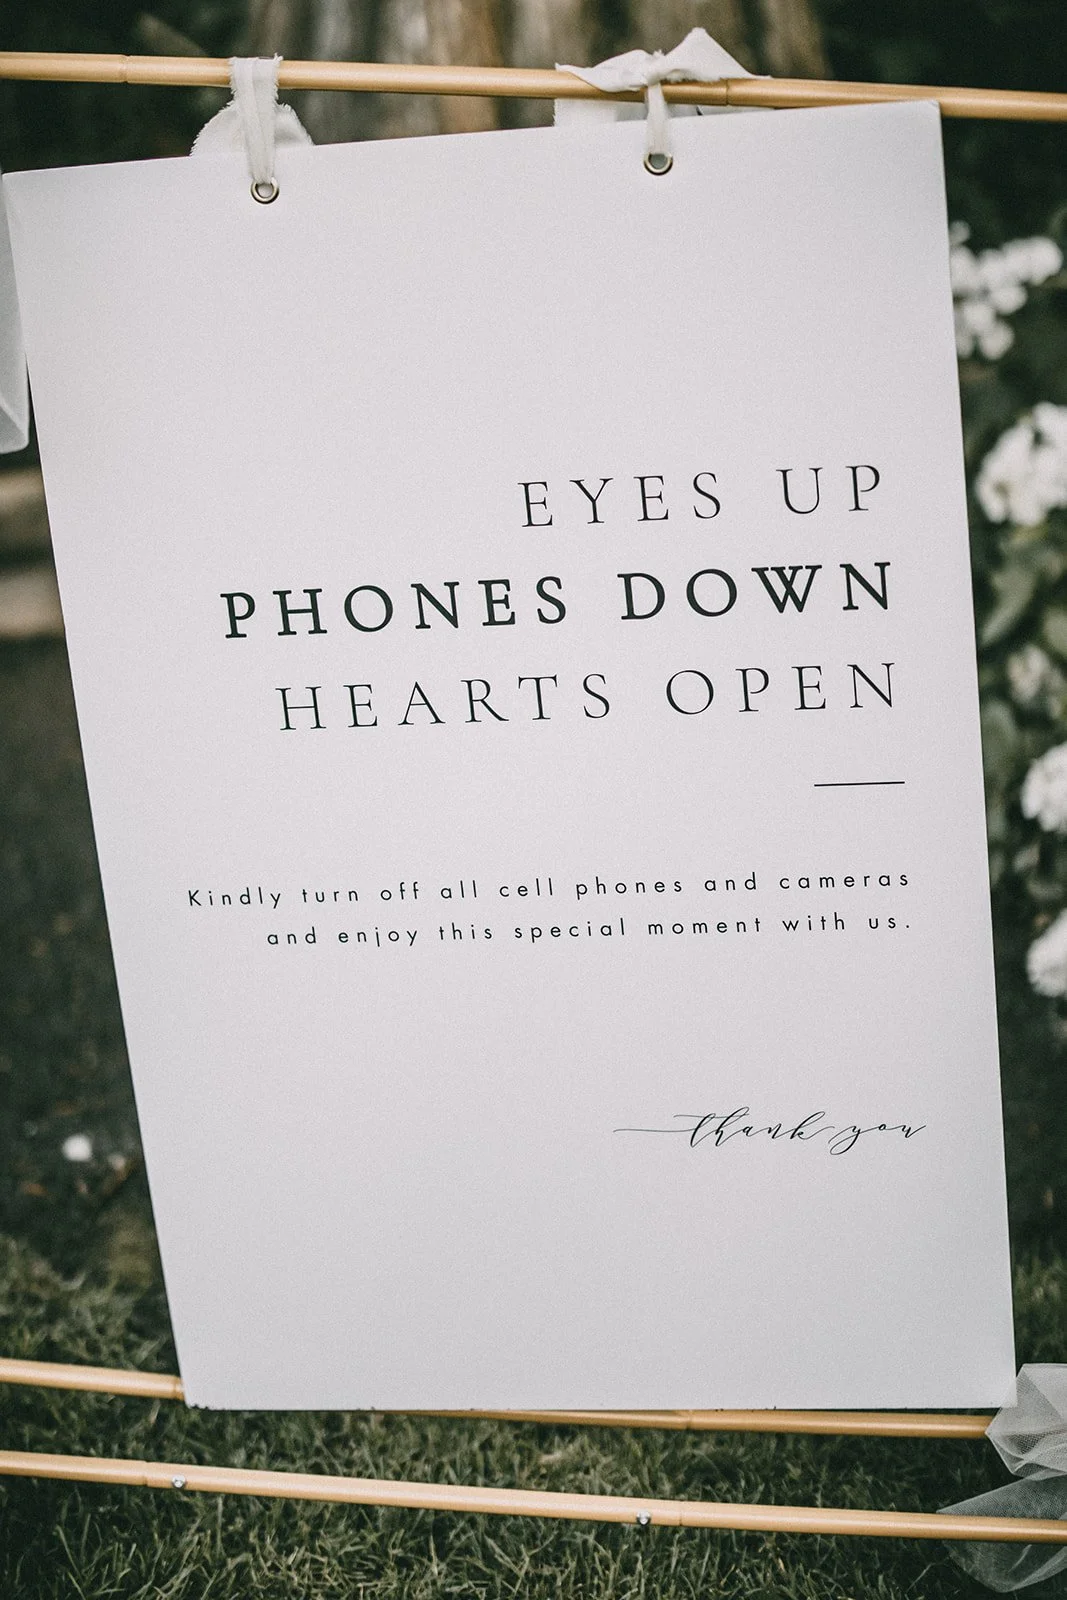 EYES UP
PHONES DOWN
HEARTS OPEN
Kindly turn off all cell phones and cameras
and enjoy this special moment with us.
thank you